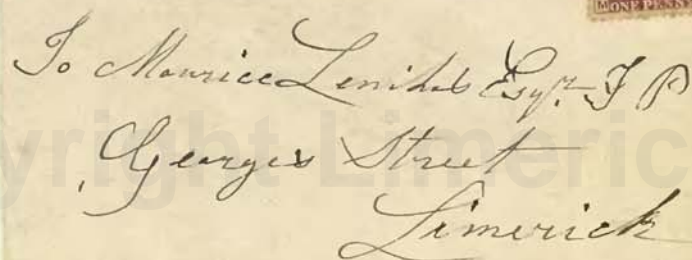 ONE PENNY
To Maurice Lenihan Esqr. J P
Georges Street
Limerick
yright Limeric